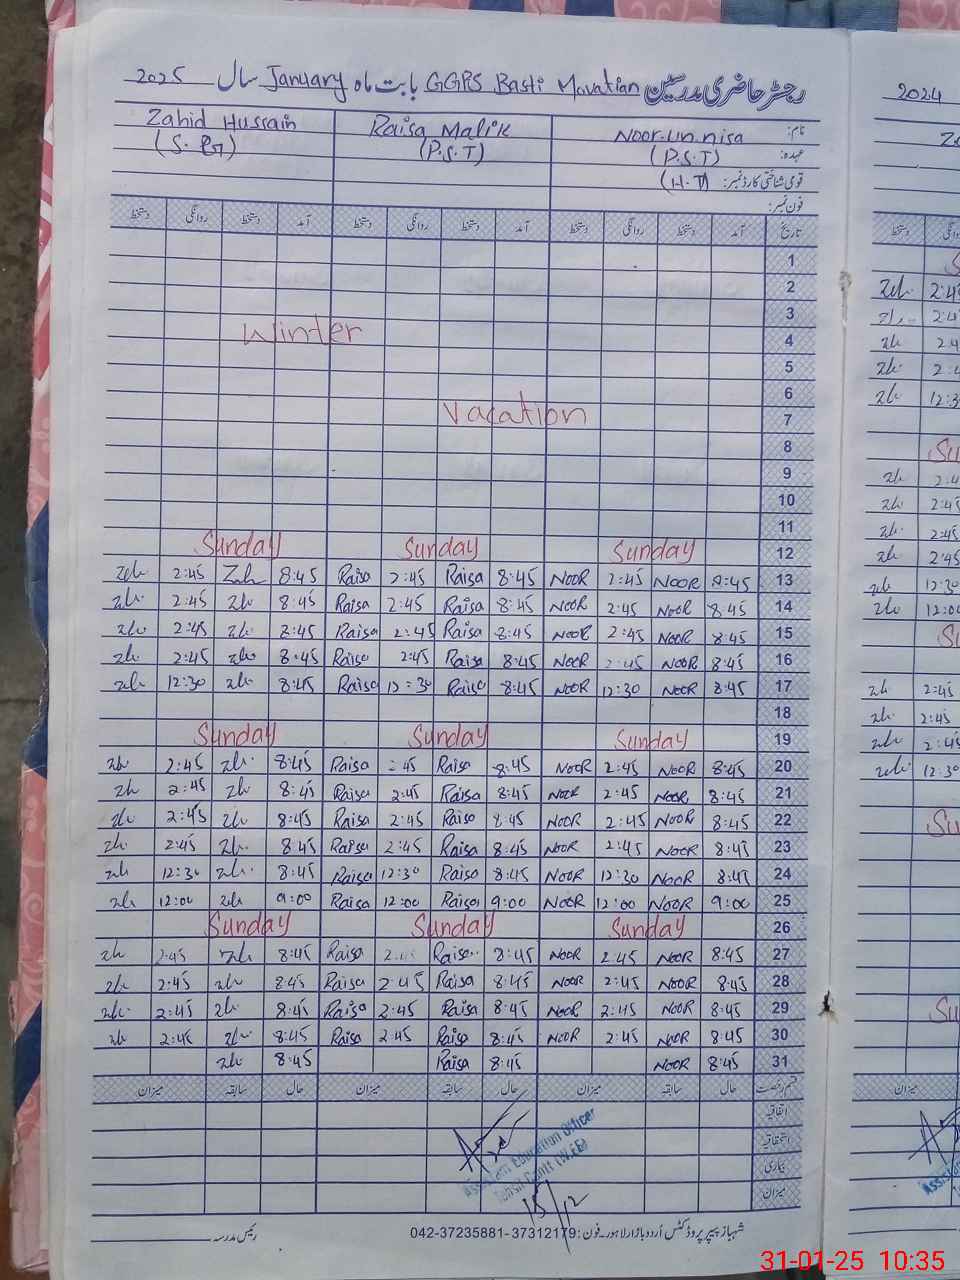 رجسٹر حاضری مدرسین GGPS Basti Movatian بابت ماہ January سال 2025
نام: Noor-un-nisa Raisa Malik Zahid Hussain
عہدہ: (P.S.T) (P.S.T) (S. )
قومی شناختی کارڈ نمبر: (H.T)
فون نمبر:
تاریخ آمد دستخط روانگی دستخط آمد دستخط روانگی دستخط آمد دستخط روانگی دستخط
1
2
3
4 Winter
5
6
7 Vacation
8
9
10
11
12 Sunday Sunday Sunday
Zah 2:45 Zah 8:45 Raisa 2:45 Raisa 8:45 NOOR 2:45 NOOR 8:45 13
zh 2:45 zh 8:45 Raisa 2:45 Raisa 8:45 NOOR 2:45 NOOR 8:45 14
zh 2:45 zh 8:45 Raisa 2:45 Raisa 8:45 NOOR 2:45 NOOR 8:45 15
zh 2:45 zh 8:45 Raisa 2:45 Raisa 8:45 NOOR 2:45 NOOR 8:45 16
zh 12:30 zh 8:45 Raisa 12:30 Raisa 8:45 NOOR 12:30 NOOR 8:45 17
18
Sunday Sunday Sunday 19
zh 2:45 zh 8:45 Raisa :45 Raisa 8:45 NOOR 2:45 NOOR 8:45 20
zh 2:45 zh 8:45 Raisa 2:45 Raisa 8:45 NOOR 2:45 NOOR 8:45 21
zh 2:45 zh 8:45 Raisa 2:45 Raisa 8:45 NOOR 2:45 NOOR 8:45 22
zh 2:45 zh 8:45 Raisa 2:45 Raisa 8:45 NOOR 2:45 NOOR 8:45 23
zh 12:30 zh 8:45 Raisa 12:30 Raisa 8:45 NOOR 12:30 NOOR 8:45 24
zh 12:00 zh 9:00 Raisa 12:00 Raisa 9:00 NOOR 12:00 NOOR 9:00 25
Sunday Sunday Sunday 26
zh 2:45 zh 8:45 Raisa 2: Raisa 8:45 NOOR 2:45 NOOR 8:45 27
zh 2:45 zh 8:45 Raisa 2:45 Raisa 8:45 NOOR 2:45 NOOR 8:45 28
zh 2:45 zh 8:45 Raisa 2:45 Raisa 8:45 NOOR 2:45 NOOR 8:45 29
zh 2:45 zh 8:45 Raisa 2:45 Raisa 8:45 NOOR 2:45 NOOR 8:45 30
zh 8:45 Raisa 8:45 NOOR 8:45 31
قسم رخصت حال سابقہ میزان حال سابقہ میزان حال سابقہ میزان
اتفاقیہ
استحقاقیہ
بیماری
میزان
Assistant Education Officer
15/12
رئیس مدرسہ
شہباز پیپر پروڈکٹس اُردو بازار لاہور۔ فون: 37312179-37235881-042
2024
دستخط
2:45
2:45
12:30
2:45
2:45
2:45
2:45
12:30
12:00
2:45
2:45
2:45
12:30
میزان
31-01-25 10:35